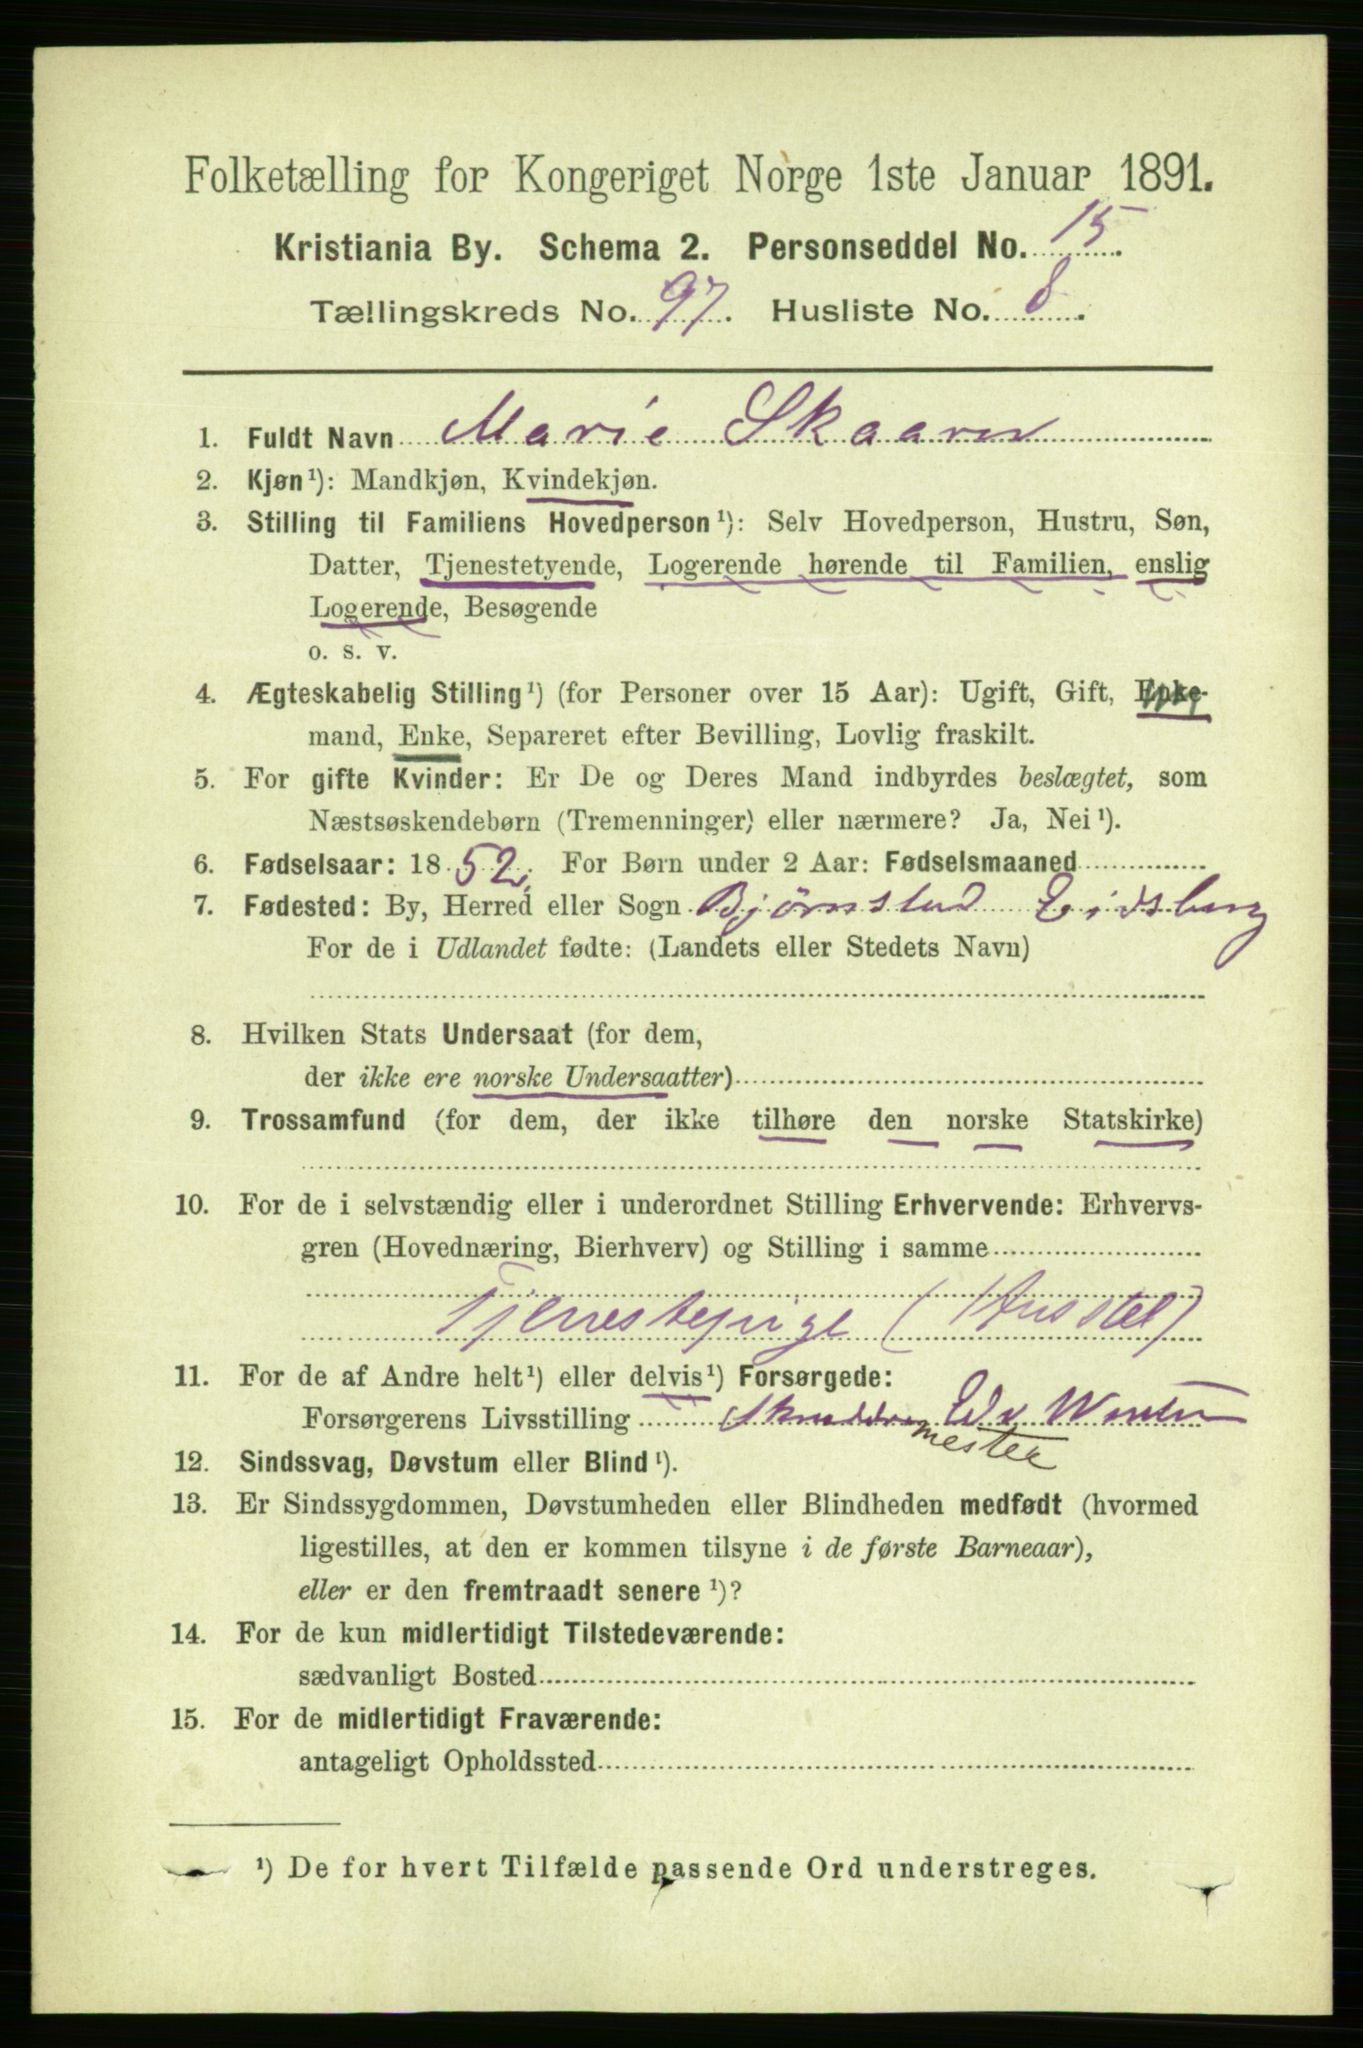 Folketælling for Kongeriget Norge 1ste Januar 1891.
Kristiania By. Schema 2. Personseddel No. 15.
Tællingskreds No. 97. Husliste No. 8.
1. Fuldt Navn Marie Skaaren
2. Kjøn¹): Mandkjøn, Kvindekjøn.
3. Stilling til Familiens Hovedperson¹): Selv Hovedperson, Hustru, Søn,
Datter, Tjenestetyende, Logerende hørende til Familien, enslig
Logerende, Besøgende
o. s. v.
4. Ægteskabelig Stilling¹) (for Personer over 15 Aar): Ugift, Gift, Enke-
mand, Enke, Separeret efter Bevilling, Lovlig fraskilt.
5. For gifte Kvinder: Er De og Deres Mand indbyrdes beslægtet, som
Næstsøskendebørn (Tremenninger) eller nærmere? Ja, Nei¹).
6. Fødselsaar: 1852. For Børn under 2 Aar: Fødselsmaaned
7. Fødested: By, Herred eller Sogn Bjørnstad Eidsberg
For de i Udlandet fødte: (Landets eller Stedets Navn)
8. Hvilken Stats Undersaat (for dem,
der ikke ere norske Undersaatter)
9. Trossamfund (for dem, der ikke tilhøre den norske Statskirke)
10. For de i selvstændig eller i underordnet Stilling Erhvervende: Erhvervs-
gren (Hovednæring, Bierhverv) og Stilling i samme
Tjenestepige (Husstel)
11. For de af Andre helt¹) eller delvis¹) Forsørgede:
Forsørgerens Livsstilling Skrædder Edv
mester
12. Sindssvag, Døvstum eller Blind¹).
13. Er Sindssygdommen, Døvstumheden eller Blindheden medfødt (hvormed
ligestilles, at den er kommen tilsyne i de første Barneaar),
eller er den fremtraadt senere¹)?
14. For de kun midlertidigt Tilstedeværende:
sædvanligt Bosted
15. For de midlertidigt Fraværende:
antageligt Opholdssted
¹) De for hvert Tilfælde passende Ord understreges.